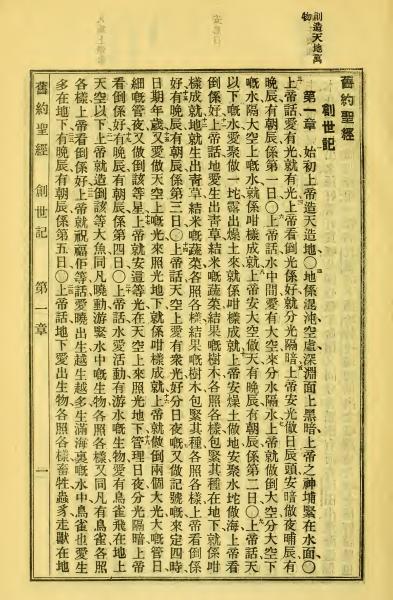 創造天地萬
物
舊約聖經
創世記
第一章 始初上帝造天造地〇地係混沌空虛深淵面上黑暗上帝之神埔緊在水面〇
上帝話愛有光就有光上帝看倒光係好就分光隔暗上帝安光做日辰頭安暗做夜晡辰有
晚辰有朝辰係第一日〇上帝話水中間愛有大空來分水隔水上帝就做倒大空分大空下
嘅水隔大空上嘅水就係咁樣成就上帝安大空做天有晚辰有朝辰係第二日〇上帝話天
以下嘅水愛聚做一坨露出燥土來就係咁樣成就上帝安燥土做地安聚水坨做海上帝看
倒係好上帝話地愛生出靑草結米嘅蔬菜結果嘅樹木各照各樣包緊其種在地下就係咁
樣成就地就生出靑草結米嘅蔬菜各照各樣結果嘅樹木包緊其種各照各樣上帝看倒係
好有晚辰有朝辰係第三日〇上帝話天空上愛有衆光好分日夜嘅又做記號嘅來定四時
日期年歲又愛做天空上嘅光來照光地下就係咁樣成就上帝就做倒兩個大光大嘅管日
細嘅管夜又做倒該等星上帝就安這等光在天空上來照光地下管理日夜分光隔暗上帝
看倒係好有晚辰有朝辰係第四日〇上帝話水愛活動有游水嘅生物愛有鳥雀飛在地上
天空以下上帝就造倒該等大魚同凡曉動游緊水中嘅生物各照各樣又同凡有鳥雀各照
各樣上帝看倒係好上帝就祝福佢等話愛曉出生越生越多生滿海裏嘅水中鳥雀也愛生
多在地下有晚辰有朝辰係第五日〇上帝話地下愛出生物各照各樣畜牲蟲豸走獸在地
舊約聖經 創世記 第一章 一